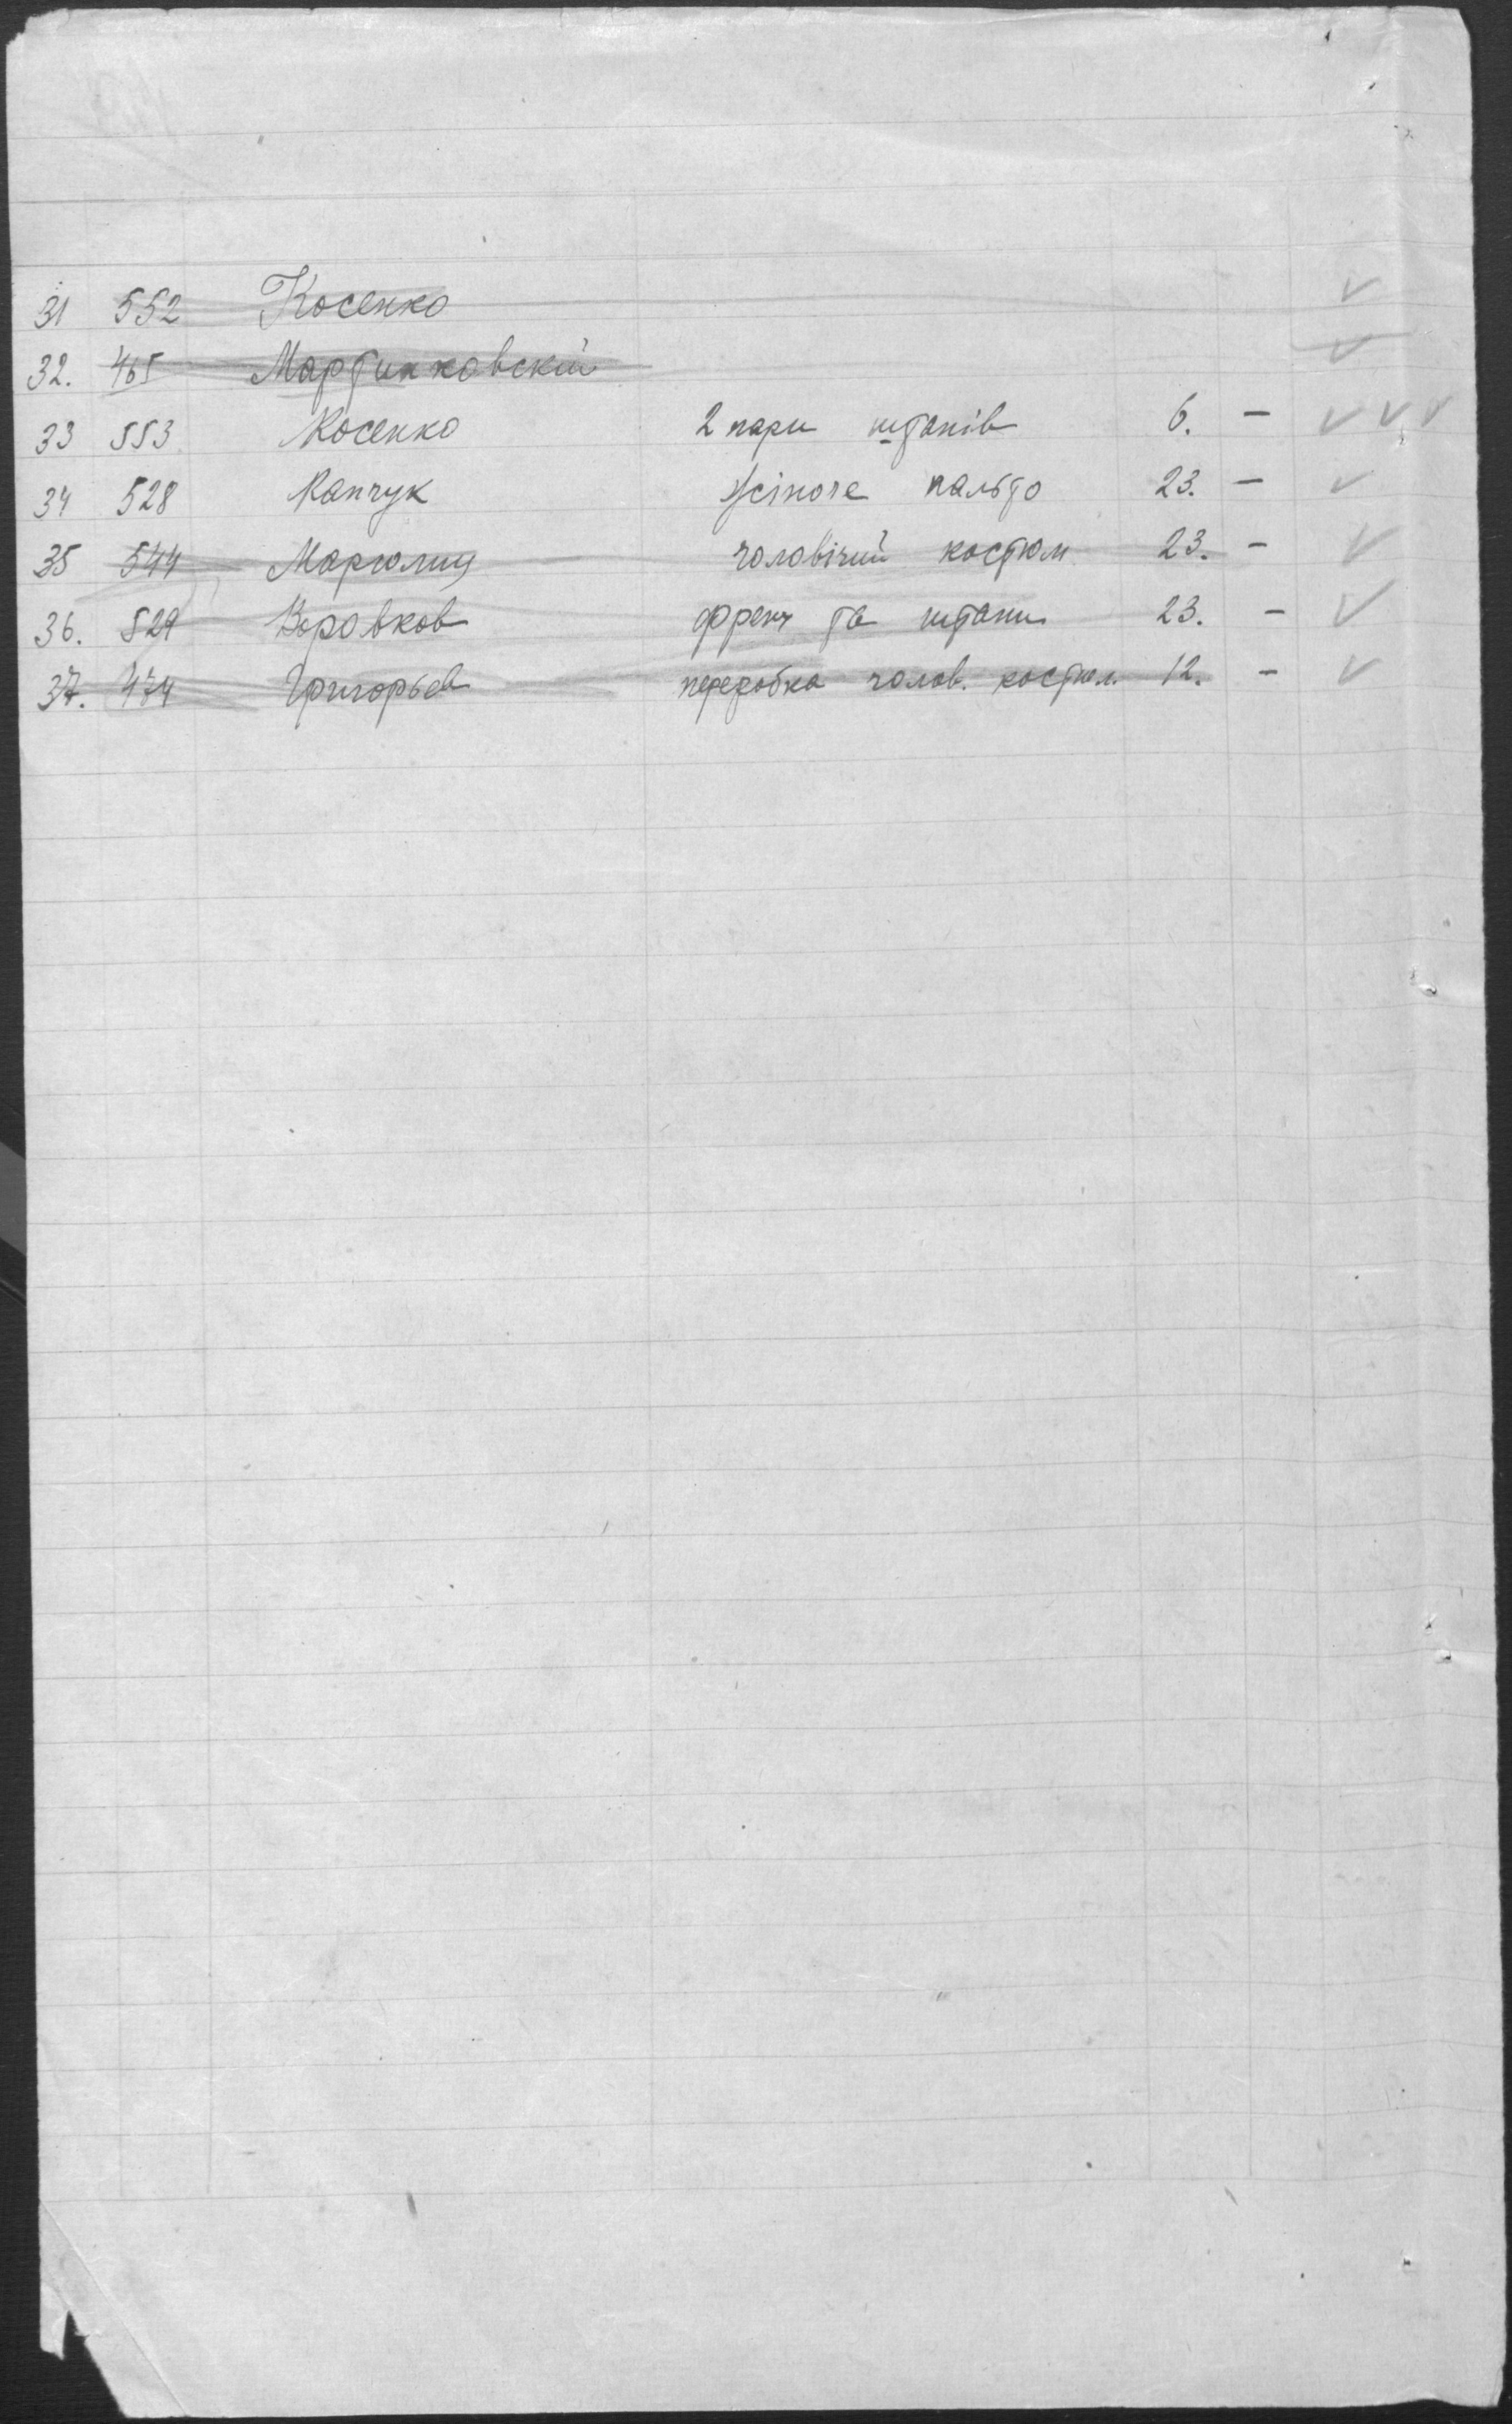 31 552 Косенко ✓
32. 465 Мартинковскій ✓
33 553 Косенко 2 пари штанів 6. – ✓ ✓ ✓
34 528 Капчук жіноче пальто 23. – ✓
35 544 чоловічий костюм 23. – ✓
36. 529 Воровков френч та штани 23. – ✓
37. 474 Григорьев переробка чолов. костюм. 12. – ✓